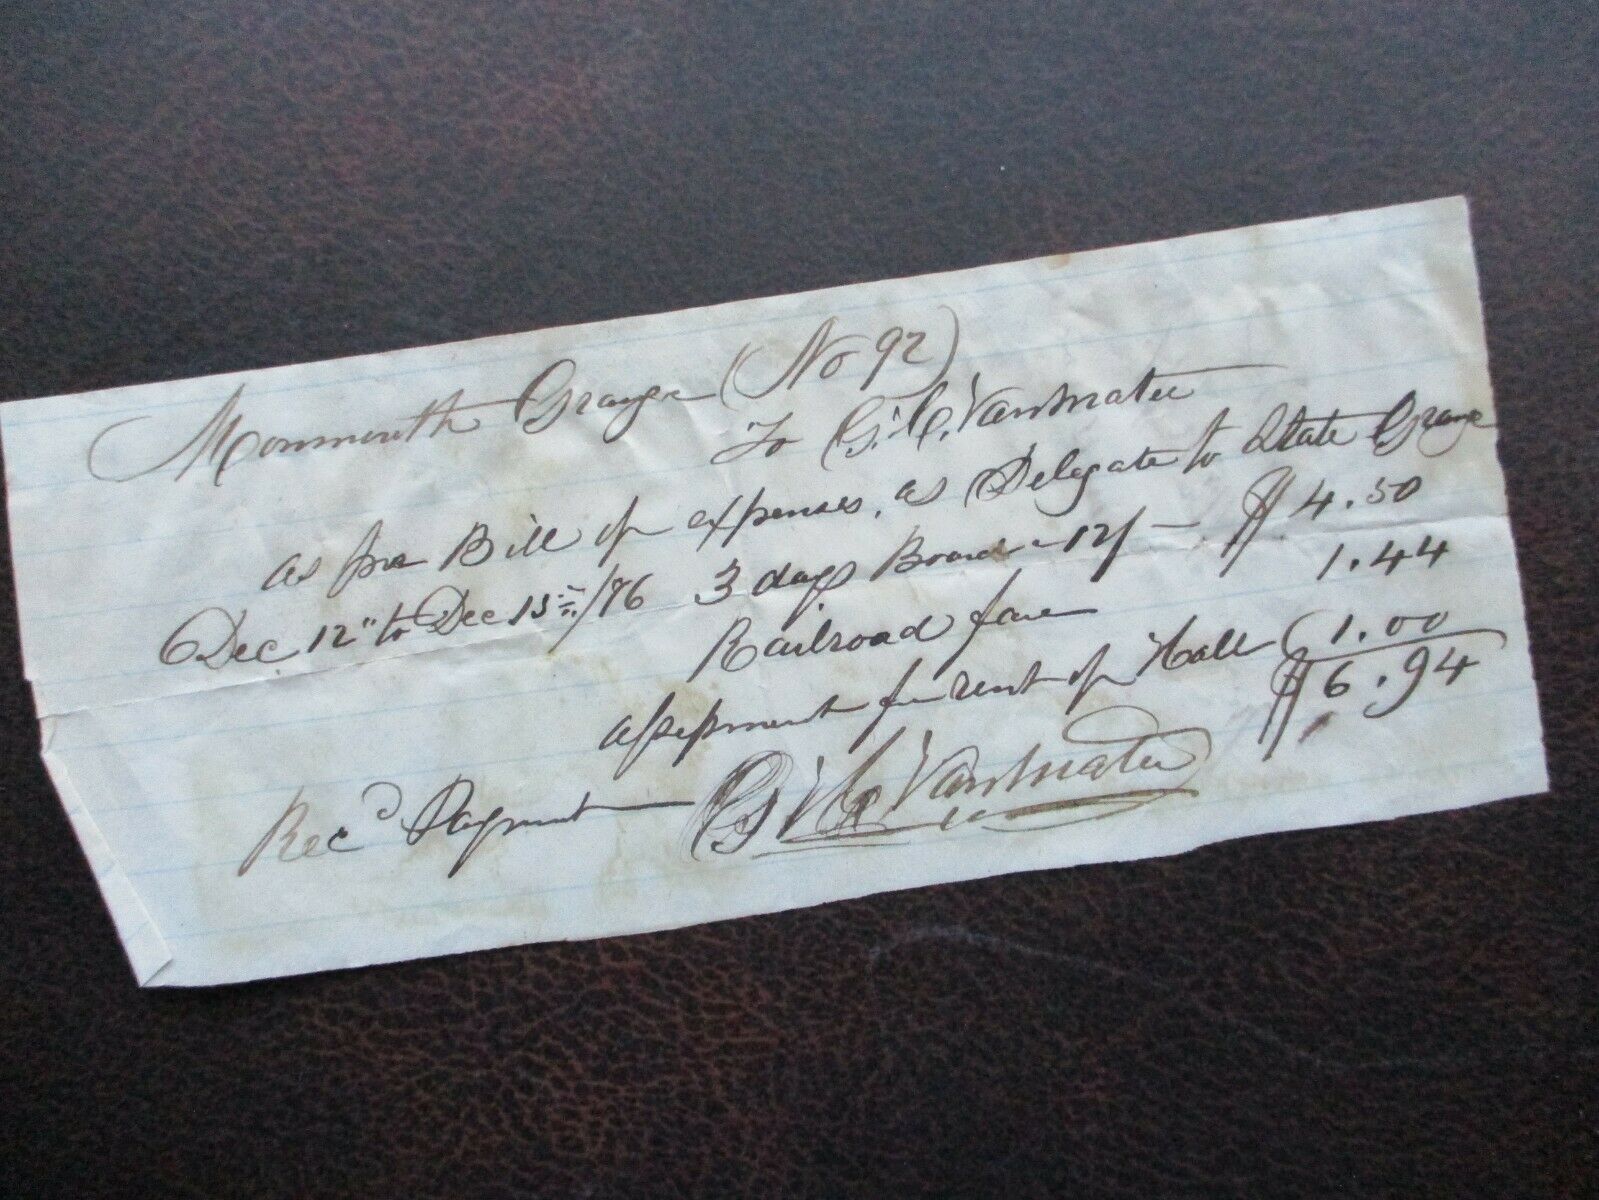 Monmouth Grange (No 92)
To G. C. VanMater
as per Bill of expenses, as Delegate to State Grange
Dec. 12" to Dec 15th/76 3 days Board - 12/ — $4.50
Railroad fare 1.44
assessment for rent of Hall 1.00
$6.94
Recd Payment G C VanMater